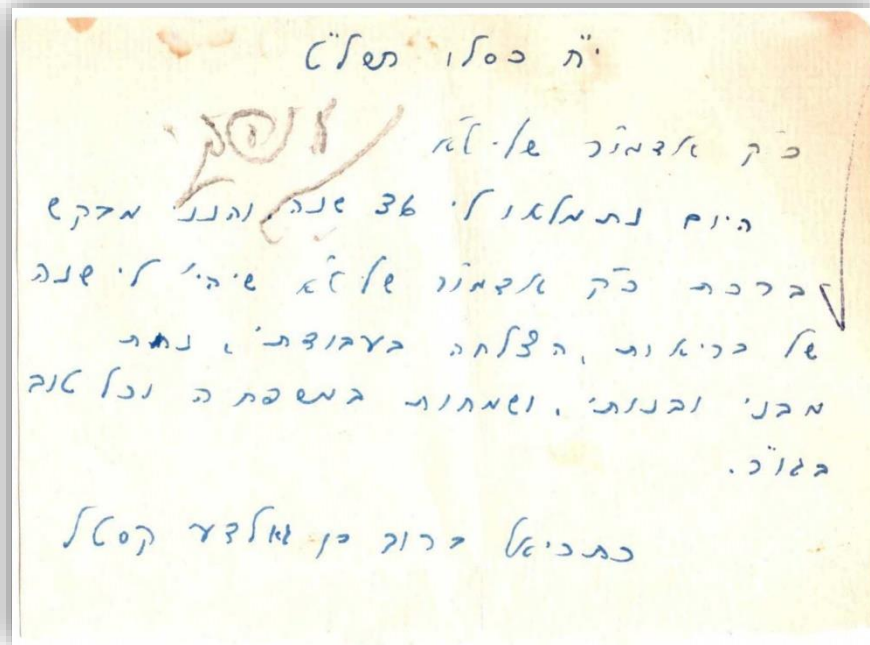 י"ח כסלו תשל"ט
כ"ק אדמו"ר שליט"א
היום נתמלאו לי שנה, והנני מבקש
ברכת כ"ק אדמו"ר שליט"א שיהי' לי שנה
של בריאות, הצלחה בעבודתי, נחת
מבני ובנותי, ושמחות במשפחה וכל טוב
בגו"ר.
כתריאל ברוך בן גאלדע קסטל